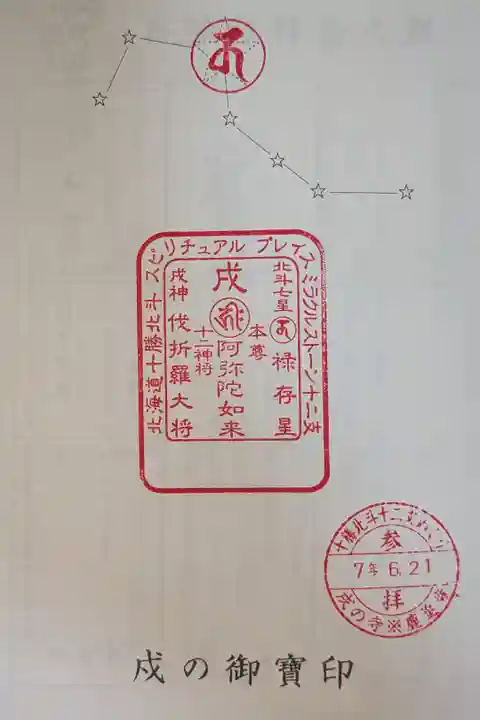 北海道十勝北斗 スピリチュアル プレイス ミラクルストーン十二支
北斗七星
禄存星
戌
本尊
阿弥陀如来
十二神将
戌神
伐折羅大将
十勝北斗十二支めぐり
参
7年 6.21
拝
戌の寺※鹿
戌の御寶印